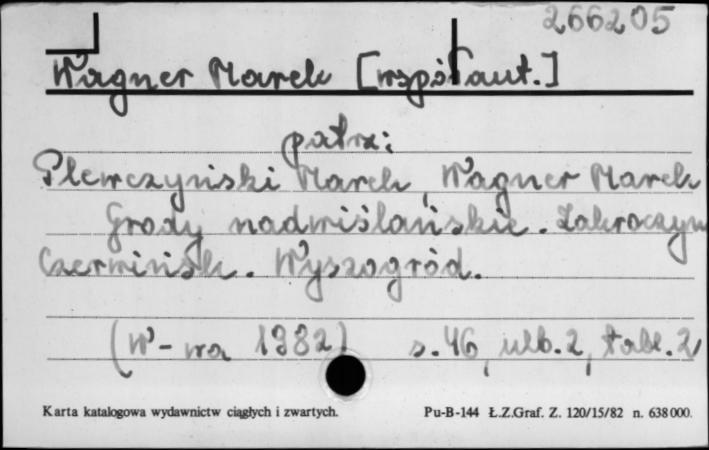 266205
Wagner Marek [współaut.]
patrz:
Plewczyński Marek, Wagner Marek
Grody nadwiślańskie. Zakroczym
Czerwińsk. Wyszogród.
(W-wa 1982) s. 46, ulb. 2, tabl. 2,
Karta katalogowa wydawnictw ciągłych i zwartych. Pu-B-144 Ł.Z.Graf. Z. 120/15/82 n. 638000.